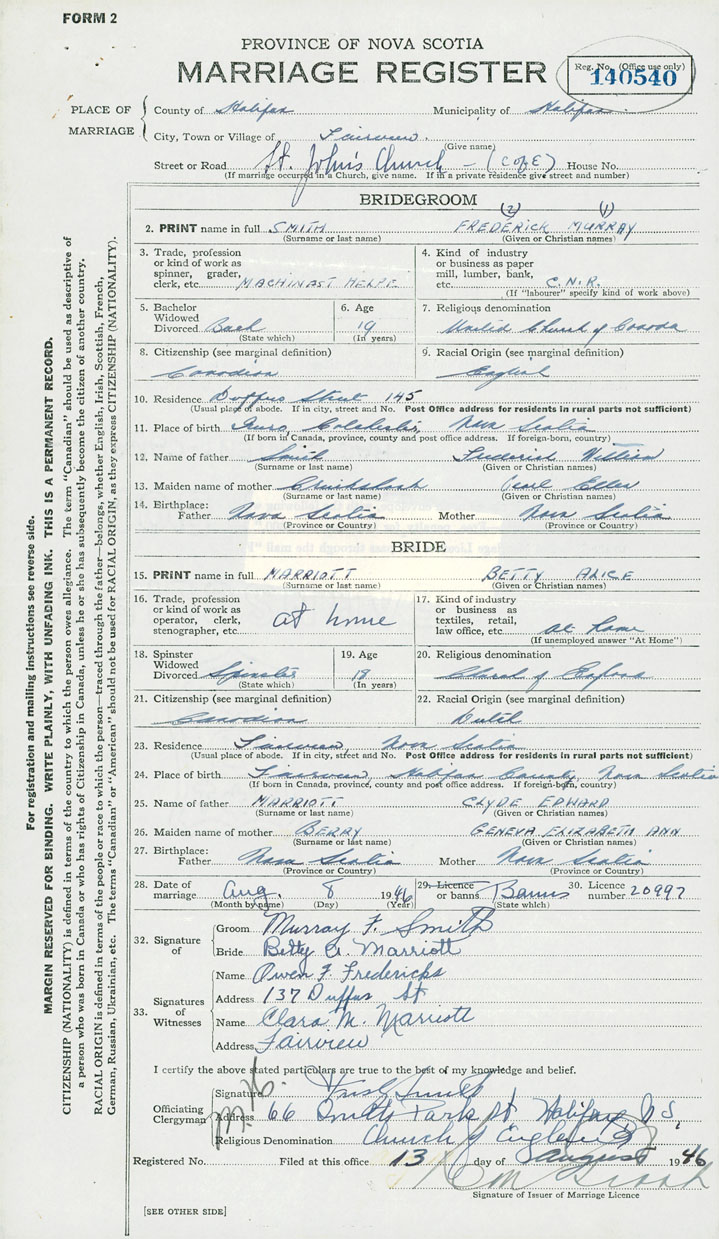 FORM 2
PROVINCE OF NOVA SCOTIA
MARRIAGE REGISTER
Reg. No. (Office use only)
140540
PLACE OF MARRIAGE
County of Halifax Municipality of Halifax
City, Town or Village of Fairview
(Give name)
Street or Road St. John's Church - (C of E) House No.
(If marriage occurred in a Church, give name. If in a private residence give street and number)
BRIDEGROOM
(2) (1)
2. PRINT name in full SMITH FREDERICK MURRAY
(Surname or last name) (Given or Christian names)
3. Trade, profession or kind of work as spinner, grader, clerk, etc. MACHINAST HELPR
4. Kind of industry or business as paper mill, lumber, bank, etc. C.N.R.
(If "labourer" specify kind of work above)
5. Bachelor Widowed Divorced Bach
(State which)
6. Age 19
(In years)
7. Religious denomination
United Church of Canada
8. Citizenship (see marginal definition)
Canadian
9. Racial Origin (see marginal definition)
English
10. Residence Duffus Street 145
(Usual place of abode. If in city, street and No. Post Office address for residents in rural parts not sufficient)
11. Place of birth Colchester, Nova Scotia
(If born in Canada, province, county and post office address. If foreign-born, country)
12. Name of father Smith Frederick William
(Surname or last name) (Given or Christian names)
13. Maiden name of mother Cruikshank Pearl Ellen
(Surname or last name) (Given or Christian names)
14. Birthplace:
Father Nova Scotia Mother Nova Scotia
(Province or Country) (Province or Country)
BRIDE
15. PRINT name in full MARRIOTT BETTY ALICE
(Surname or last name) (Given or Christian names)
16. Trade, profession or kind of work as operator, clerk, stenographer, etc. at home
17. Kind of industry or business as textiles, retail, law office, etc. at home
(If unemployed answer "At Home")
18. Spinster Widowed Divorced Spinster
(State which)
19. Age 18
(In years)
20. Religious denomination
Church of England
21. Citizenship (see marginal definition)
Canadian
22. Racial Origin (see marginal definition)
Dutch
23. Residence Fairview, Nova Scotia
(Usual place of abode. If in city, street and No. Post Office address for residents in rural parts not sufficient)
24. Place of birth Fairview, Halifax County, Nova Scotia
(If born in Canada, province, county and post office address. If foreign-born, country)
25. Name of father MARRIOTT CLYDE EDWARD
(Surname or last name) (Given or Christian names)
26. Maiden name of mother BERRY GENEVA ELIZABETH ANN
(Surname or last name) (Given or Christian names)
27. Birthplace:
Father Nova Scotia Mother Nova Scotia
(Province or Country) (Province or Country)
28. Date of marriage Aug. 8 1946
(Month by name) (Day) (Year)
29. Licence or banns Banns
(State which)
30. Licence number 20997
32. Signature of
Groom Murray F. Smith
Bride Betty A. Marriott
33. Signatures of Witnesses
Name Owen F. Fredericks
Address 137 Duffus St
Name Clara M. Marriott
Address Fairview
I certify the above stated particulars are true to the best of my knowledge and belief.
Officiating Clergyman
Signature
Address 66 Park St Halifax N S
Religious Denomination Church of England
Registered No. Filed at this office 13 day of August 1946
Signature of Issuer of Marriage Licence
[SEE OTHER SIDE]
For registration and mailing instructions see reverse side.
MARGIN RESERVED FOR BINDING. WRITE PLAINLY, WITH UNFADING INK. THIS IS A PERMANENT RECORD.
CITIZENSHIP (NATIONALITY) is defined in terms of the country to which the person owes allegiance. The term "Canadian" should be used as descriptive of
a person who was born in Canada or who has rights of Citizenship in Canada, unless he or she has subsequently become the citizen of another country.
RACIAL ORIGIN is defined in terms of the people or race to which the person—traced through the father—belongs, whether English, Irish, Scottish, French,
German, Russian, Ukrainian, etc. The terms "Canadian" or "American" should not be used for RACIAL ORIGIN, as they express CITIZENSHIP (NATIONALITY).